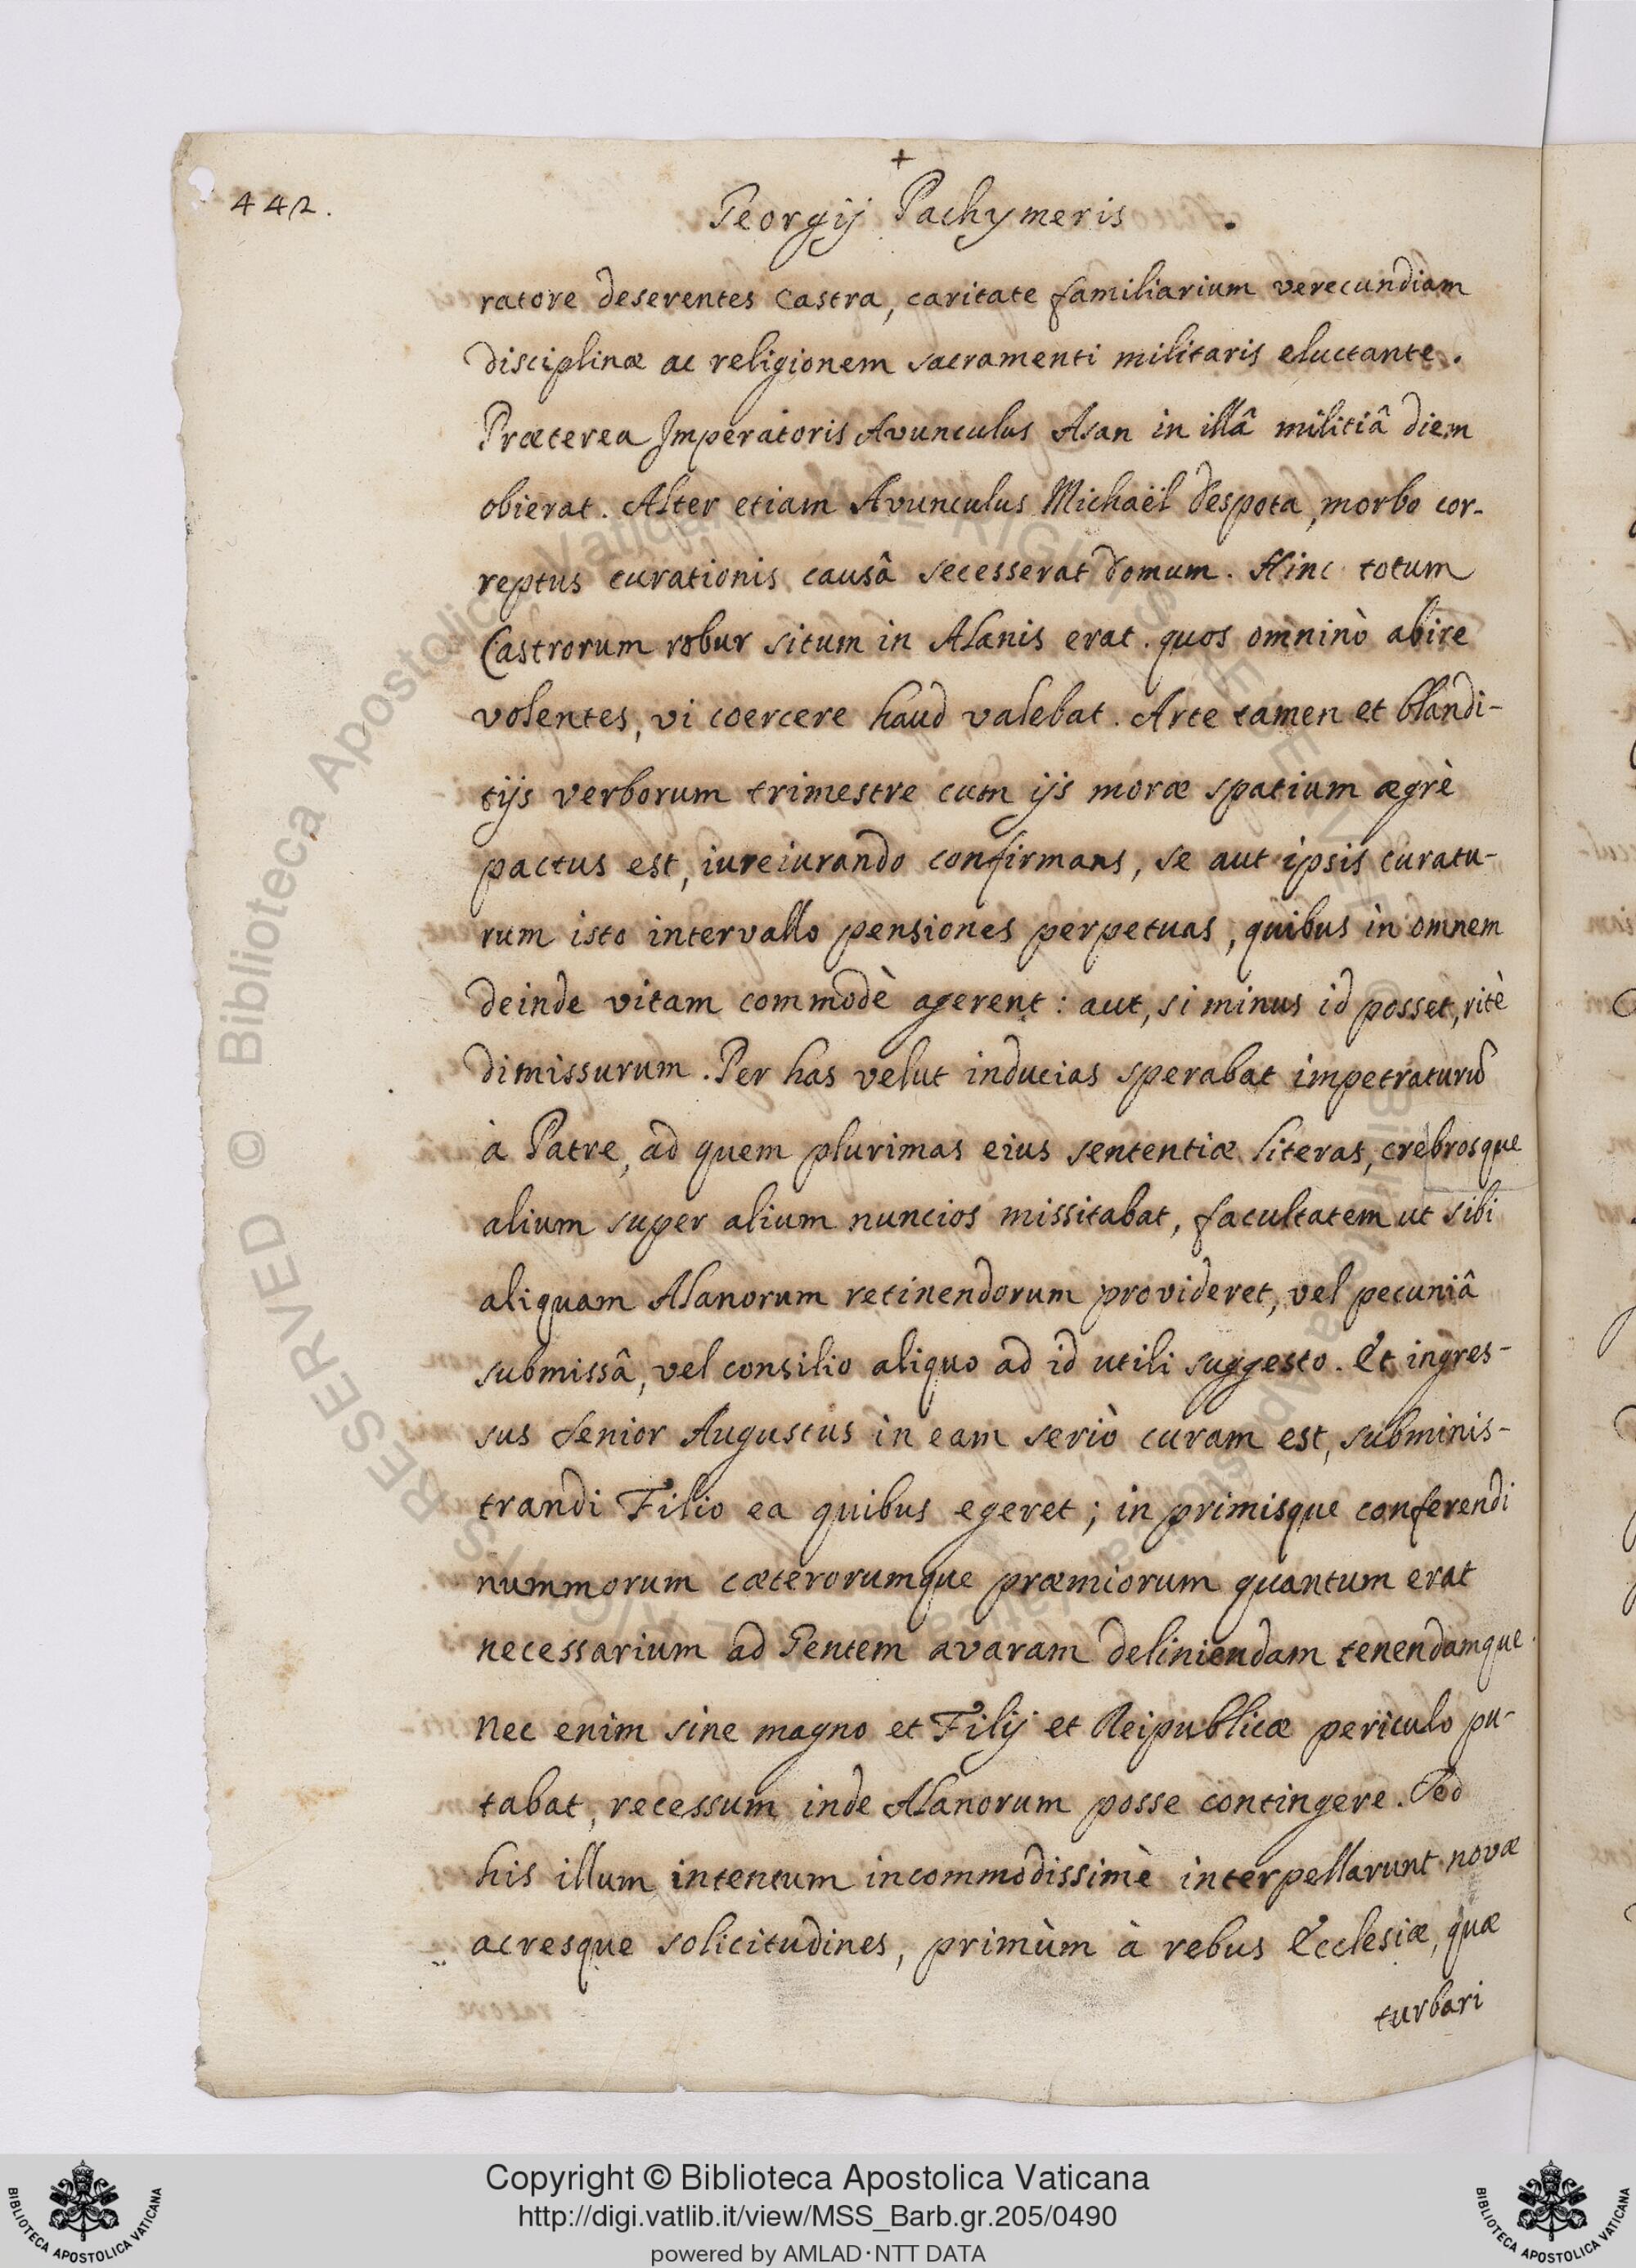 442.
+
Georgij Pachymeris .
ratore deserentes Castra, caritate familiarium verecundiam
disciplinæ ac religionem sacramenti militaris eluctante.
Præterea Imperatoris Avunculus Asan in illâ militiâ diem
obierat. Alter etiam Avunculus Michaël despota, morbo cor-
reptus curationis causâ secesserat domum. Hinc totum
Castrorum robur situm in Alanis erat. quos omninò abire
volentes, vi coercere haud valebat. Arte tamen et blandi-
tijs verborum trimestre cum ijs moræ spatium ægrè
pactus est, iureiurando confirmans, se aut ipsis curatu-
rum isto intervallo pensiones perpetuas, quibus in omnem
deinde vitam commodè agerent: aut, si minus id posset, ritè
dimissurum. Per has velut inducias sperabat impetraturū
à Patre, ad quem plurimas eius sententiæ literas, crebrosque
alium super alium nuncios missitabat, facultatem ut sibi
aliquam Alanorum retinendorum provideret, vel pecuniâ
submissâ, vel consilio aliquo ad id utili suggesto. Et ingres-
sus senior Augustus in eam seriò curam est, subminis-
trandi Filio ea quibus egeret; in primisque conferendi
nummorum cæterorumque præmiorum quantum erat
necessarium ad Gentem avaram deliniendam tenendamque.
nec enim sine magno et Filij et Reipublicæ periculo pu-
tabat, recessum inde Alanorum posse contingere. Sed
his illum intentum incommodissimè interpellarunt novæ
acresque solicitudines, primùm à rebus Ecclesiæ, quæ
turbari
Copyright © Biblioteca Apostolica Vaticana
http://digi.vatlib.it/view/MSS_Barb.gr.205/0490
powered by AMLAD·NTT DATA
BIBLIOTECA APOSTOLICA VATICANA
BIBLIOTECA APOSTOLICA VATICANA